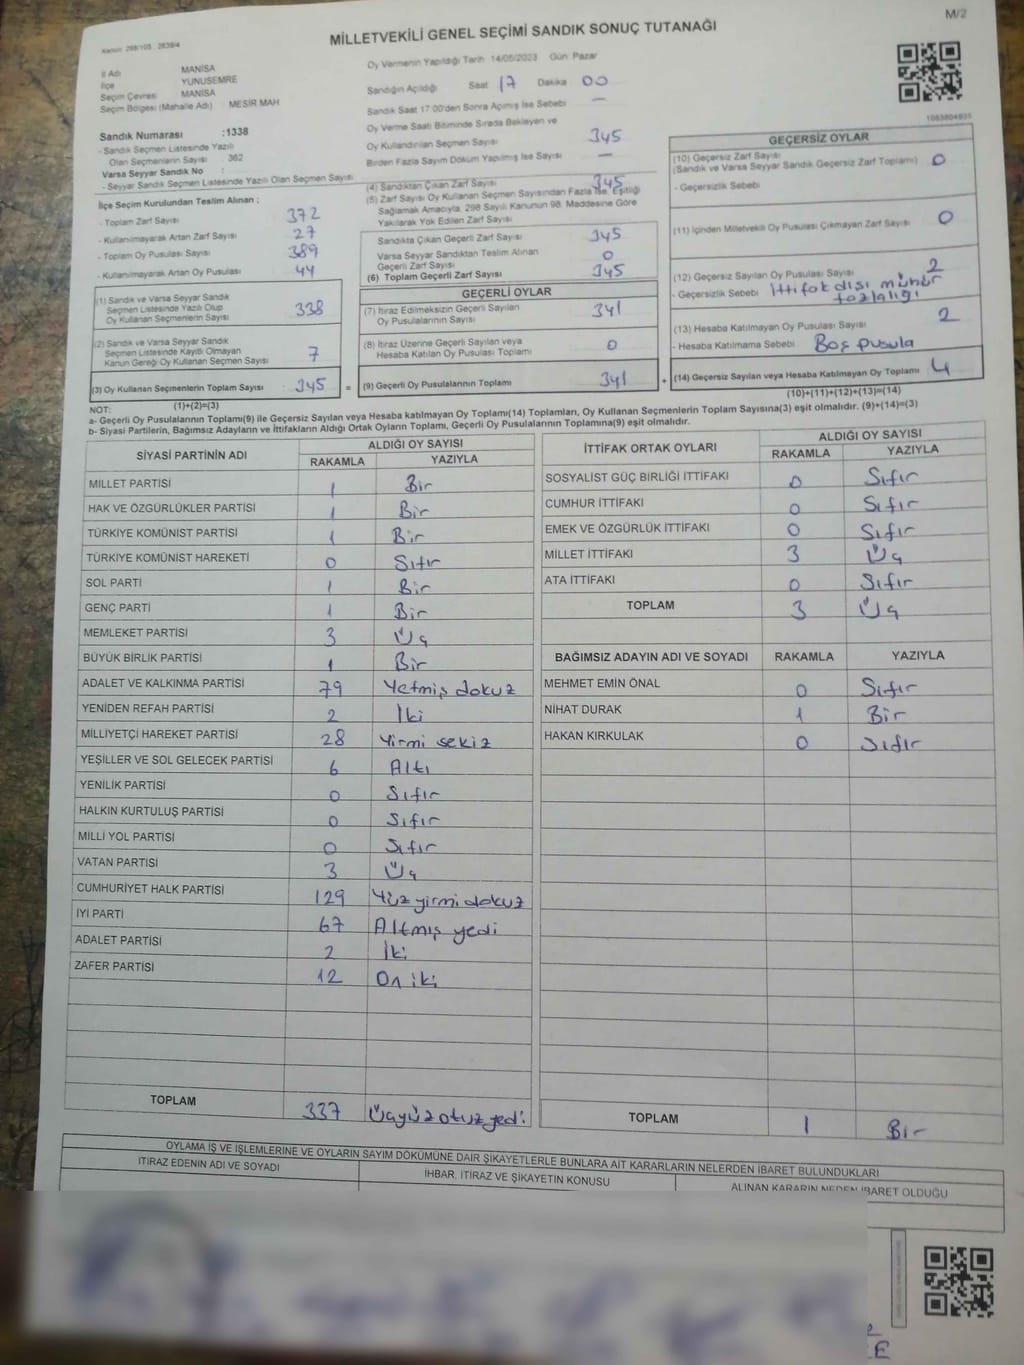 M/2
Kanun: 298/105 , 2839/4
MİLLETVEKİLİ GENEL SEÇİMİ SANDIK SONUÇ TUTANAĞI
İl Adı MANİSA
İlçe YUNUSEMRE
Seçim Çevresi MANİSA
Seçim Bölgesi (Mahalle Adı) MESİR MAH
Sandık Numarası :1338
- Sandık Seçmen Listesinde Yazılı
Olan Seçmenlerin Sayısı 362
Varsa Seyyar Sandık No :
- Seyyar Sandık Seçmen Listesinde Yazılı Olan Seçmen Sayısı
İlçe Seçim Kurulundan Teslim Alınan ;
- Toplam Zarf Sayısı 372
- Kullanılmayarak Artan Zarf Sayısı 27
- Toplam Oy Pusulası Sayısı 389
- Kullanılmayarak Artan Oy Pusulası 44
(1) Sandık ve Varsa Seyyar Sandık
Seçmen Listesinde Yazılı Olup
Oy Kullanan Seçmenlerin Sayısı 338
(2) Sandık ve Varsa Seyyar Sandık
Seçmen Listesinde Kayıtlı Olmayan
Kanun Gereği Oy Kullanan Seçmen Sayısı 7
(3) Oy Kullanan Seçmenlerin Toplam Sayısı 345 =
(1)+(2)=(3)
Oy Vermenin Yapıldığı Tarih 14/05/2023 Gün: Pazar
Sandığın Açıldığı Saat 17 Dakika 00
Sandık Saat 17:00'den Sonra Açılmış İse Sebebi —
Oy Verme Saati Bitiminde Sırada Bekleyen ve
Oy Kullandırılan Seçmen Sayısı 345
Birden Fazla Sayım Döküm Yapılmış İse Sayısı —
(4) Sandıktan Çıkan Zarf Sayısı 345
(5) Zarf Sayısı Oy Kullanan Seçmen Sayısından Fazla İse, Eşitliği
Sağlamak Amacıyla, 298 Sayılı Kanunun 98. Maddesine Göre
Yakılarak Yok Edilen Zarf Sayısı
Sandıkta Çıkan Geçerli Zarf Sayısı 345
Varsa Seyyar Sandıktan Teslim Alınan
Geçerli Zarf Sayısı 0
(6) Toplam Geçerli Zarf Sayısı 345
GEÇERLİ OYLAR
(7) İtiraz Edilmeksizin Geçerli Sayılan
Oy Pusulalarının Sayısı 341
(8) İtiraz Üzerine Geçerli Sayılan veya
Hesaba Katılan Oy Pusulası Toplamı 0
(9) Geçerli Oy Pusulalarının Toplamı 341 +
1083804935
GEÇERSİZ OYLAR
(10) Geçersiz Zarf Sayısı
(Sandık ve Varsa Seyyar Sandık Geçersiz Zarf Toplamı) 0
- Geçersizlik Sebebi
(11) İçinden Milletvekili Oy Pusulası Çıkmayan Zarf Sayısı 0
(12) Geçersiz Sayılan Oy Pusulası Sayısı 2
- Geçersizlik Sebebi İttifak dışı mühür
fazlalığı
(13) Hesaba Katılmayan Oy Pusulası Sayısı 2
- Hesaba Katılmama Sebebi Boş pusula
(14) Geçersiz Sayılan veya Hesaba Katılmayan Oy Toplamı 4
(10)+(11)+(12)+(13)=(14)
NOT:
a- Geçerli Oy Pusulalarının Toplamı(9) ile Geçersiz Sayılan veya Hesaba katılmayan Oy Toplamı(14) Toplamları, Oy Kullanan Seçmenlerin Toplam Sayısına(3) eşit olmalıdır. (9)+(14)=(3)
b- Siyasi Partilerin, Bağımsız Adayların ve İttifakların Aldığı Ortak Oyların Toplamı, Geçerli Oy Pusulalarının Toplamına(9) eşit olmalıdır.
SİYASİ PARTİNİN ADI ALDIĞI OY SAYISI
RAKAMLA YAZIYLA
MİLLET PARTİSİ 1 Bir
HAK VE ÖZGÜRLÜKLER PARTİSİ 1 Bir
TÜRKİYE KOMÜNİST PARTİSİ 1 Bir
TÜRKİYE KOMÜNİST HAREKETİ 0 Sıfır
SOL PARTİ 1 Bir
GENÇ PARTİ 1 Bir
MEMLEKET PARTİSİ 3 Üç
BÜYÜK BİRLİK PARTİSİ 1 Bir
ADALET VE KALKINMA PARTİSİ 79 Yetmiş dokuz
YENİDEN REFAH PARTİSİ 2 İki
MİLLİYETÇİ HAREKET PARTİSİ 28 Yirmi sekiz
YEŞİLLER VE SOL GELECEK PARTİSİ 6 Altı
YENİLİK PARTİSİ 0 Sıfır
HALKIN KURTULUŞ PARTİSİ 0 Sıfır
MİLLİ YOL PARTİSİ 0 Sıfır
VATAN PARTİSİ 3 Üç
CUMHURİYET HALK PARTİSİ 129 Yüz yirmi dokuz
İYİ PARTİ 67 Altmış yedi
ADALET PARTİSİ 2 İki
ZAFER PARTİSİ 12 On iki
TOPLAM 337 Üçyüz otuz yedi
İTTİFAK ORTAK OYLARI ALDIĞI OY SAYISI
RAKAMLA YAZIYLA
SOSYALİST GÜÇ BİRLİĞİ İTTİFAKI 0 Sıfır
CUMHUR İTTİFAKI 0 Sıfır
EMEK VE ÖZGÜRLÜK İTTİFAKI 0 Sıfır
MİLLET İTTİFAKI 3 Üç
ATA İTTİFAKI 0 Sıfır
TOPLAM 3 Üç
BAĞIMSIZ ADAYIN ADI VE SOYADI RAKAMLA YAZIYLA
MEHMET EMİN ÖNAL 0 Sıfır
NİHAT DURAK 1 Bir
HAKAN KIRKULAK 0 Sıfır
TOPLAM 1 Bir
OYLAMA İŞ VE İŞLEMLERİNE VE OYLARIN SAYIM DÖKÜMÜNE DAİR ŞİKAYETLERLE BUNLARA AİT KARARLARIN NELERDEN İBARET BULUNDUKLARI
İTİRAZ EDENİN ADI VE SOYADI İHBAR, İTİRAZ VE ŞİKAYETİN KONUSU ALINAN KARARIN NEDEN İBARET OLDUĞU